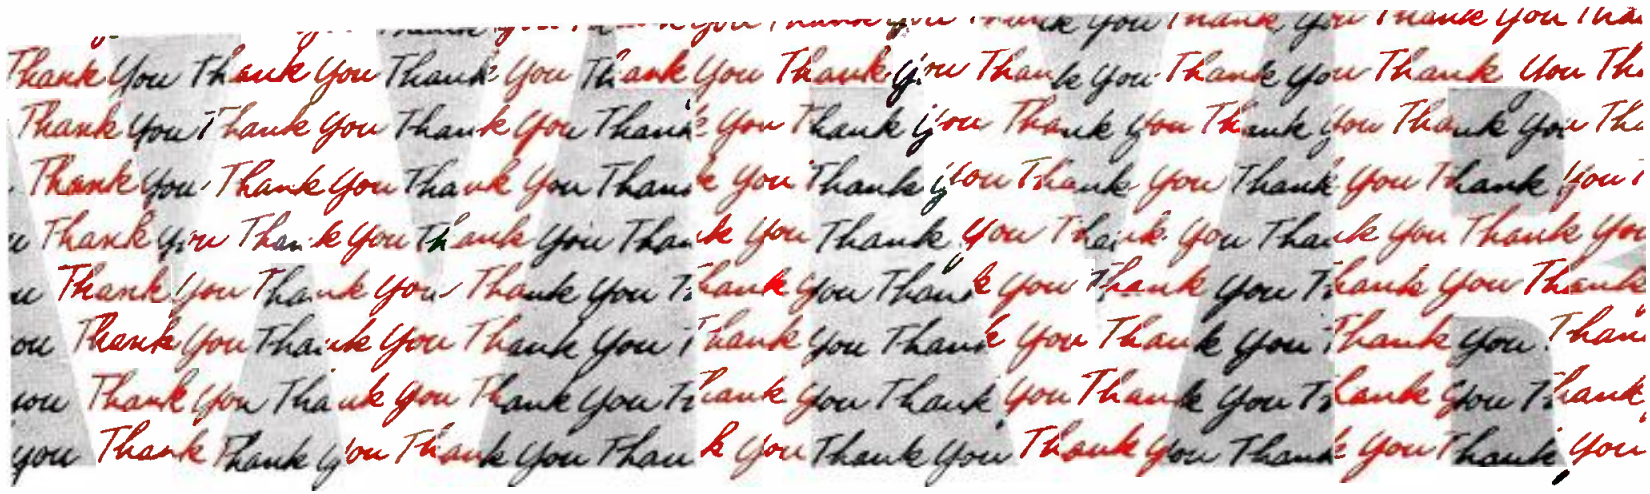 Thank you Thank you Thank you Thank you Tha
Thank You Thank You Thank You Thank You Thank you Thank you Thank you Thank You Tha
Thank You Thank You Thank you Thank you Thank you Thank you Thank you Thank you Tha
Thank you Thank You Thank you Thank you Thank you Thank you Thank you Thank you T
u Thank you Thank you Thank you Thank you Thank you Thank you Thank you Thank you
u Thank you Thank you Thank you Thank you Thank you Thank you Thank you Thank
ou Thank you Thank you Thank you Thank you Thank you Thank you Thank you Than
you Thank you Thank you Thank you Thank you Thank you Thank you Thank you Thank
you Thank you Thank you Thank you Thank you Thank you Thank you Thank you Thank you